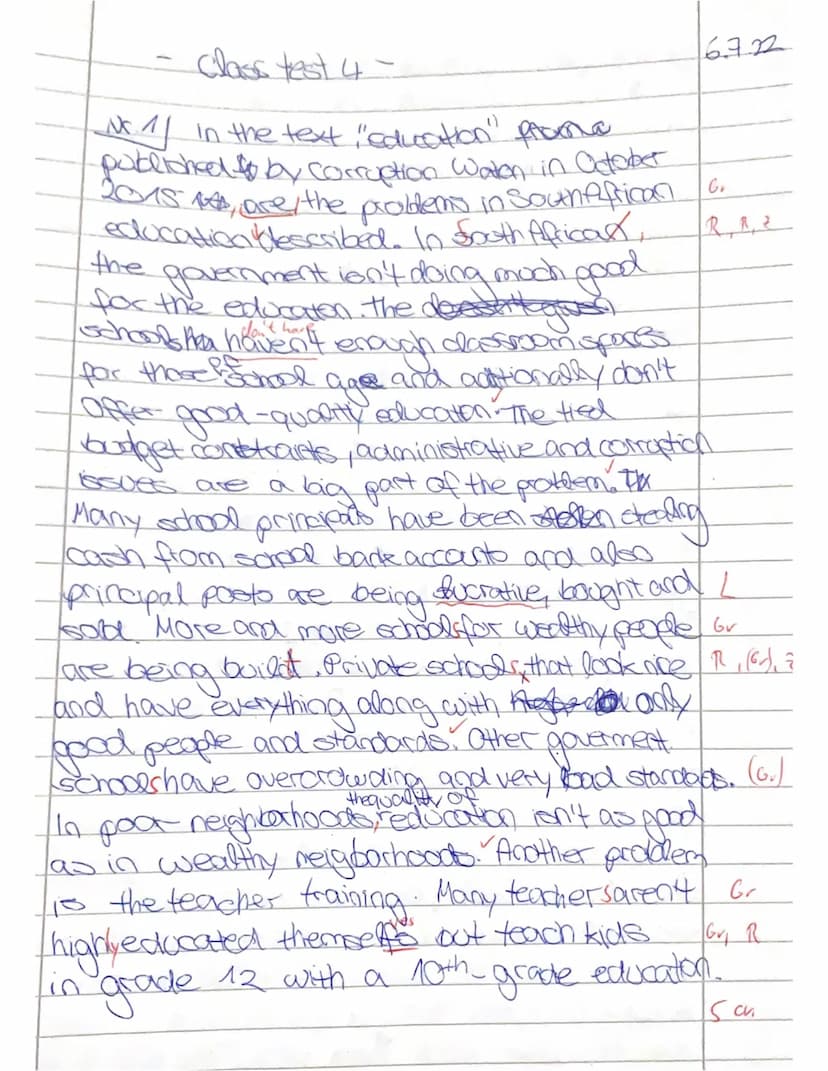 6.7.22
- Class test 4 -
Nr. 1) In the text "education" from a
published to by corruption Watch in October
2015, are the problems in South African G.
education described. In South Africa, R, R, Z
the government isn't doing much good
for the education. The
don't have
schools haven't enough classroom spaces
of
for those school age and additionally don't
offer good-quality education. The tied
budget constraints, administrative and corruption
issues are a big part of the problem.
Many school principals have been stealing
cash from school bank accounts and also
principal posts are being lucrative, bought and L
sold. More and more schools for wealthy people Gr
are being build. Private schools, that look nice R, (Gr), Z
and have everything along with only
good people and standards. Other goverment
schools have overcrowding and very bad standards. (Gr)
the quality of
In poor neighborhoods, education isn't as good
as in wealthy neigborhoods. Another problem
is the teacher training. Many teachers aren't Gr
ves
highly educated themselfs but teach kids Gr, R
in grade 12 with a 10th-grade education.
5 cm